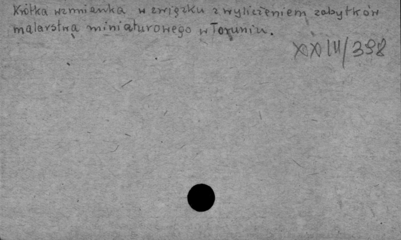 Krótka wzmianka w związku z wyliczeniem zabytków
malarstwa miniaturowego w Toruniu.
XXIII/398